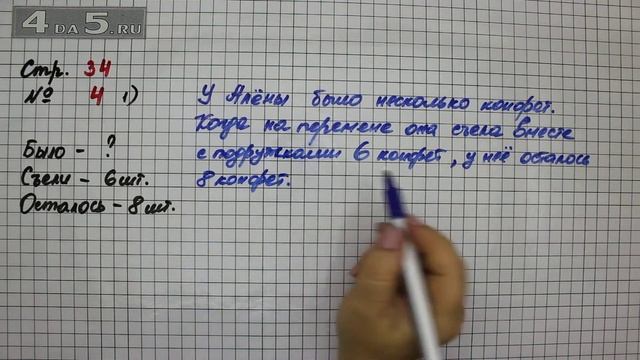 4 DA 5.RU
Стр. 34
№ 4 1)
Было - ?
Съели - 6 шт.
Осталось - 8 шт.
У Алёны было несколько конфет.
Когда на перемене она съела вместе
с подружками 6 конфет, у неё осталось
8 конфет.